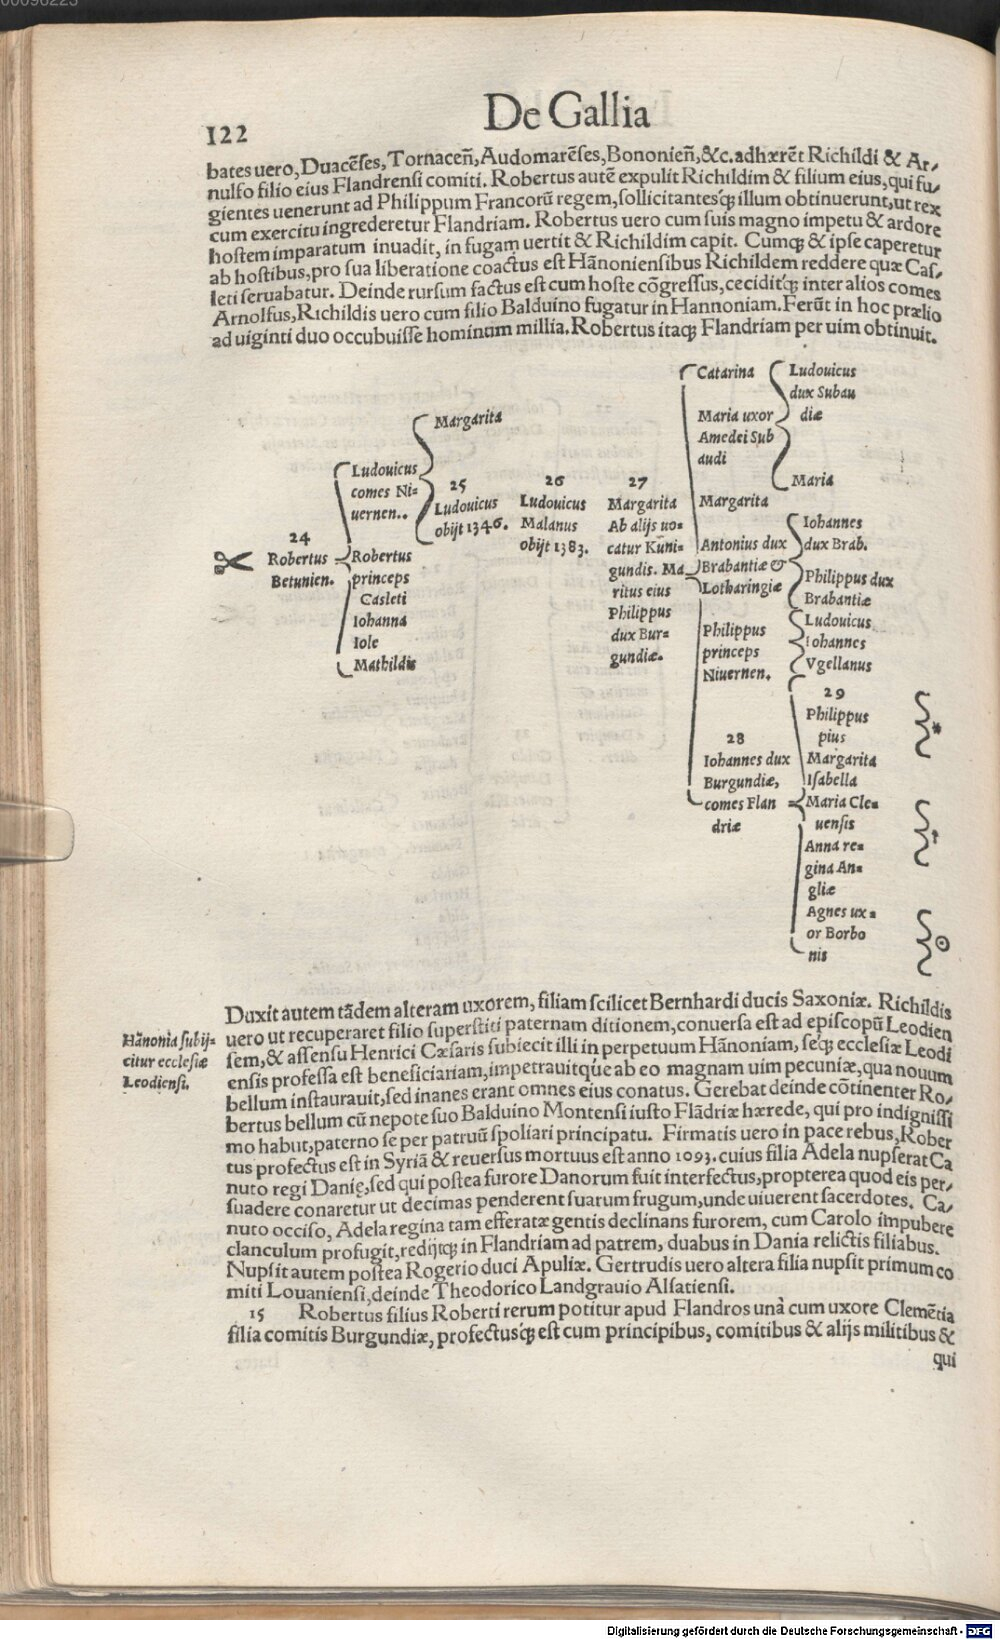 00096223
122
De Gallia
bates uero, Duacēſes, Tornaceñ, Audomarēſes, Bononieñ, &c. adhærēt Richildi & Ar/
nulfo filio eius Flandrenſi comiti. Robertus autē expulit Richildim & filium eius, qui fu/
gientes uenerunt ad Philippum Francorū regem, ſollicitantesq́ꝫ illum obtinuerunt, ut rex
cum exercitu ingrederetur Flandriam. Robertus uero cum ſuis magno impetu & ardore
hoſtem imparatum inuadit, in fugam uertit & Richildim capit. Cumqꝫ & ipſe caperetur
ab hoſtibus, pro ſua liberatione coactus eſt Hānonienſibus Richildem reddere quæ Caſ/
leti ſeruabatur. Deinde rurſum factus eſt cum hoſte cōgreſſus, ceciditq́ꝫ inter alios comes
Arnolfus, Richildis uero cum filio Balduino fugatur in Hannoniam. Ferūt in hoc prælio
ad uiginti duo occubuiſſe hominum millia. Robertus itaqꝫ Flandriam per uim obtinuit.
24
Robertus
Betunien.
Ludouicus
comes Ni=
uernen..
Robertus
princeps
Casleti
Iohanna
Iole
Mathildis
Margarita
25
Ludouicus
obijt 1346.
26
Ludouicus
Malanus
obijt 1383.
27
Margarita
Ab alijs uo=
catur Kuni=
gundis. Ma
ritus eius
Philippus
dux Bur=
gundiæ.
Catarina
Maria uxor
Amedei Sub
audi
Margarita
Antonius dux
Brabantiæ &
Lotharingiæ
Philippus
princeps
Niuernen.
28
Iohannes dux
Burgundiæ,
comes Flan
driæ
Ludouicus
dux Subau
diæ
Maria
Iohannes
dux Brab.
Philippus dux
Brabantiæ
Ludouicus
Iohannes
Vgellanus
29
Philippus
pius
Margarita
Iſabella
Maria Cle=
uenſis
Anna re=
gina An=
gliæ
Agnes ux=
or Borbo
nis
Duxit autem tādem alteram uxorem, filiam ſcilicet Bernhardi ducis Saxoniæ. Richildis
Hānonia ſubij=
citur eccleſiæ
Leodienſi.
uero ut recuperaret filio ſuperſtiti paternam ditionem, conuerſa eſt ad epiſcopū Leodien
ſem, & aſſenſu Henrici Cæſaris ſubiecit illi in perpetuum Hānoniam, ſeq́ꝫ eccleſiæ Leodi
enſis profeſſa eſt beneficiariam, impetrauitq́ue ab eo magnam uim pecuniæ, qua nouum
bellum inſtaurauit, ſed inanes erant omnes eius conatus. Gerebat deinde cōtinenter Ro/
bertus bellum cū nepote ſuo Balduino Montenſi iuſto Flādriæ hærede, qui pro indigniſſi
mo habuit, paterno ſe per patruū ſpoliari principatu. Firmatis uero in pace rebus, Rober
tus profectus eſt in Syriā & reuerſus mortuus eſt anno 1093. cuius filia Adela nupſerat Ca
nuto regi Danię, ſed qui poſtea furore Danorum fuit interfectus, propterea quod eis per/
ſuadere conaretur ut decimas penderent ſuarum frugum, unde uiuerent ſacerdotes. Ca/
nuto occiſo, Adela regina tam efferatæ gentis declinans furorem, cum Carolo impubere
clanculum profugit, redijtqꝫ in Flandriam ad patrem, duabus in Dania relictis filiabus.
Nupſit autem poſtea Rogerio duci Apuliæ. Gertrudis uero altera filia nupſit primum co
miti Louanienſi, deinde Theodorico Landgrauio Alſatienſi.
15 Robertus filius Roberti rerum potitur apud Flandros unà cum uxore Clemētia
filia comitis Burgundiæ, profectusq́ꝫ eſt cum principibus, comitibus & alijs militibus &
qui
Digitalisierung gefördert durch die Deutsche Forschungsgemeinschaft - DFG